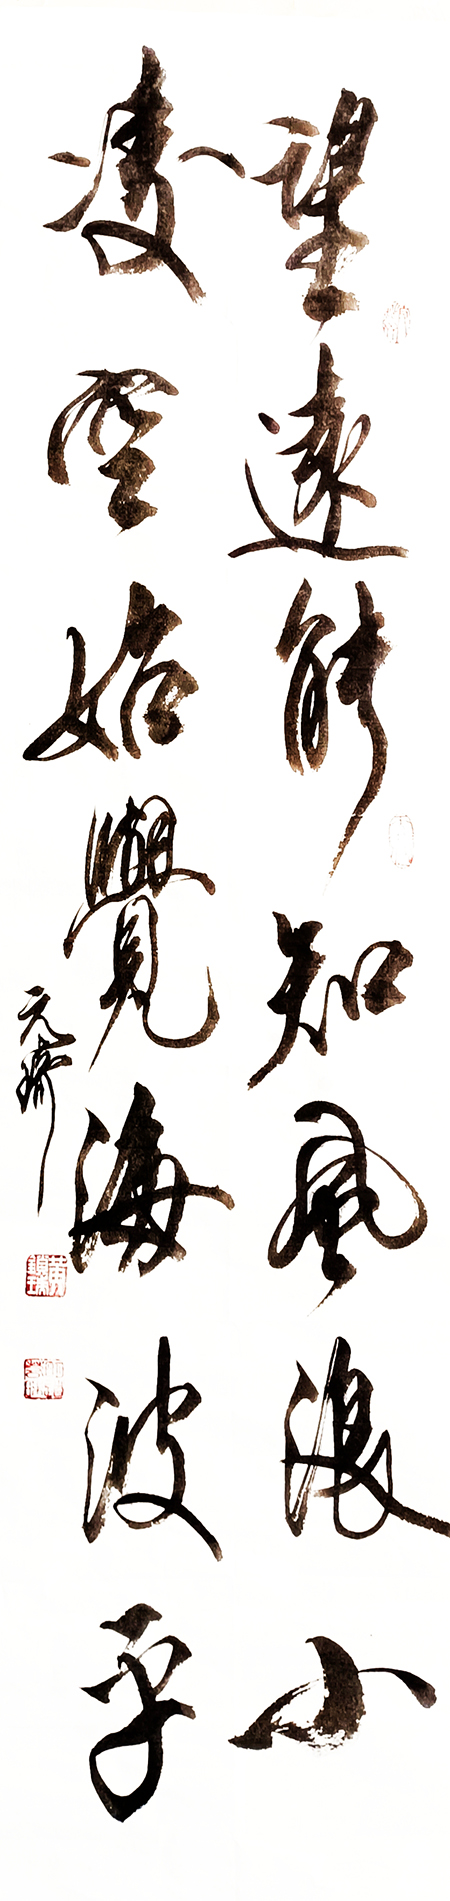 望遠能知風浪小
凌空始覺海波平
元瑞